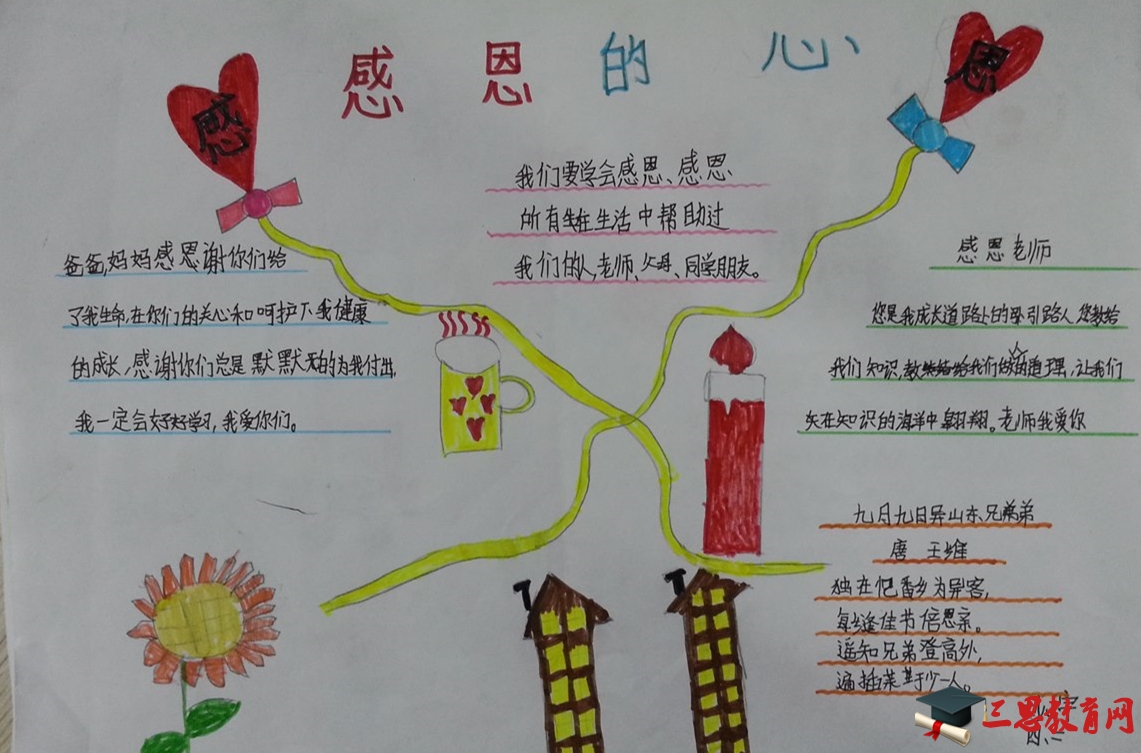 感恩的心
感
恩
我们要学会感恩、感恩
所有在生活中帮助过
我们的人,老师、父母、同学朋友。
爸爸,妈妈感恩谢你们给
了我生命,在你们的关心和呵护下我健康
的成长,感谢你们总是默默无的为我付出,
我一定会好好学习,我爱你们。
感恩老师
您是我成长道路上的引路人,您教给
我们知识,教给我们做的道理,让我们
在知识的海洋中翱翔。老师我爱你
九月九日异山东兄弟
唐 王维
独在他乡为异客,
每逢佳节倍思亲。
遥知兄弟登高外,
遍插茱于少一人。
三恩教育网